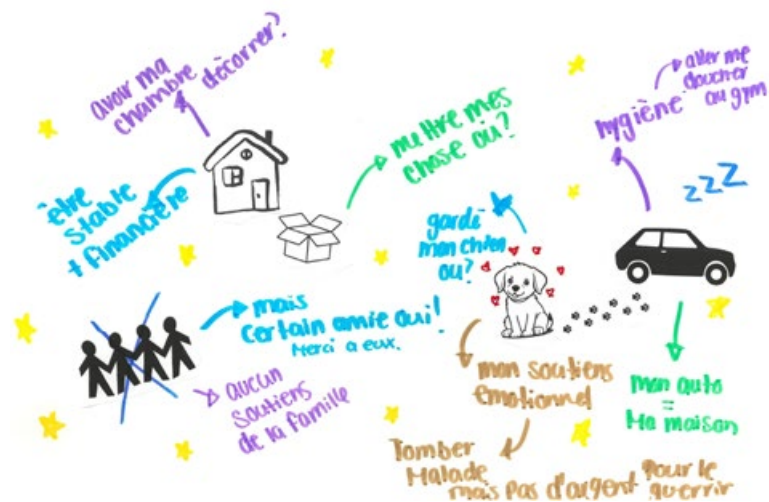 avoir ma
chambre décorrer?
être
stable
+ financière
mettre mes
chose où?
hygiène
aller me
doucher
au gym
zzz
gardé
mon chien
ou?
mais
certain amie oui!
Merci a eux.
aucun
soutiens
de la famille
mon soutiens
emotionnel
Tomber
Malade
mais pas d'argent pour le
guerrir
mon auto
=
Ma maison